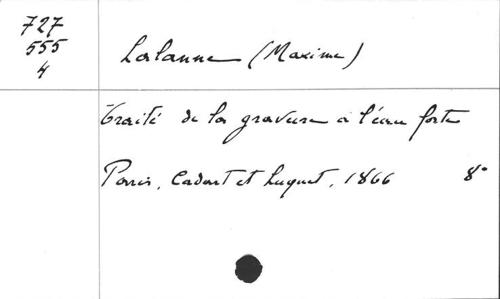 727
555
4
Lalanne (Maxime)
Traité de la gravure à l'eau forte
Paris, Cadart et Luquet, 1866 8°